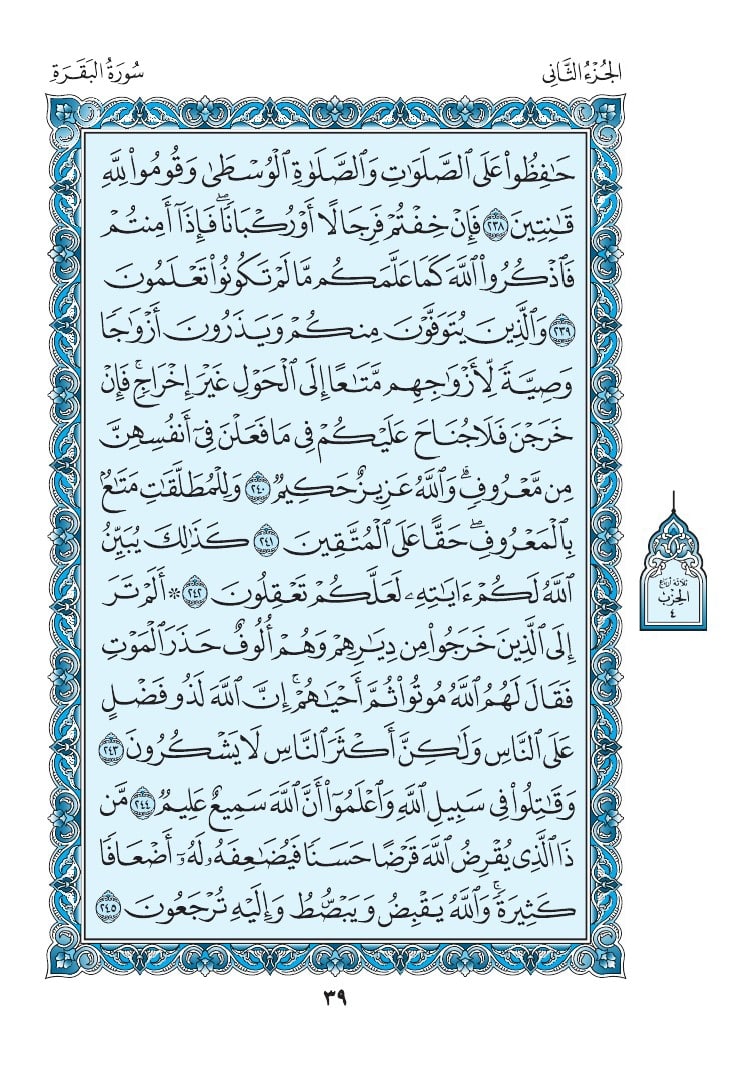 الجُزْءُ الثَّانِي
سُورَةُ البَقَرَةِ
حَٰفِظُواْ عَلَى ٱلصَّلَوَٰتِ وَٱلصَّلَوٰةِ ٱلۡوُسۡطَىٰ وَقُومُواْ لِلَّهِ
قَٰنِتِينَ ٢٣٨ فَإِنۡ خِفۡتُمۡ فَرِجَالًا أَوۡ رُكۡبَانٗاۖ فَإِذَآ أَمِنتُمۡ
فَٱذۡكُرُواْ ٱللَّهَ كَمَا عَلَّمَكُم مَّا لَمۡ تَكُونُواْ تَعۡلَمُونَ
٢٣٩ وَٱلَّذِينَ يُتَوَفَّوۡنَ مِنكُمۡ وَيَذَرُونَ أَزۡوَٰجٗا
وَصِيَّةٗ لِّأَزۡوَٰجِهِم مَّتَٰعًا إِلَى ٱلۡحَوۡلِ غَيۡرَ إِخۡرَاجٖۚ فَإِنۡ
خَرَجۡنَ فَلَا جُنَاحَ عَلَيۡكُمۡ فِي مَا فَعَلۡنَ فِيٓ أَنفُسِهِنَّ
مِن مَّعۡرُوفٖۗ وَٱللَّهُ عَزِيزٌ حَكِيمٞ ٢٤٠ وَلِلۡمُطَلَّقَٰتِ مَتَٰعُۢ
بِٱلۡمَعۡرُوفِۖ حَقًّا عَلَى ٱلۡمُتَّقِينَ ٢٤١ كَذَٰلِكَ يُبَيِّنُ
ٱللَّهُ لَكُمۡ ءَايَٰتِهِۦ لَعَلَّكُمۡ تَعۡقِلُونَ ٢٤٢ ۞ أَلَمۡ تَرَ
إِلَى ٱلَّذِينَ خَرَجُواْ مِن دِيَٰرِهِمۡ وَهُمۡ أُلُوفٌ حَذَرَ ٱلۡمَوۡتِ
فَقَالَ لَهُمُ ٱللَّهُ مُوتُواْ ثُمَّ أَحۡيَٰهُمۡۚ إِنَّ ٱللَّهَ لَذُو فَضۡلٍ
عَلَى ٱلنَّاسِ وَلَٰكِنَّ أَكۡثَرَ ٱلنَّاسِ لَا يَشۡكُرُونَ ٢٤٣
وَقَٰتِلُواْ فِي سَبِيلِ ٱللَّهِ وَٱعۡلَمُوٓاْ أَنَّ ٱللَّهَ سَمِيعٌ عَلِيمٞ ٢٤٤ مَّن
ذَا ٱلَّذِي يُقۡرِضُ ٱللَّهَ قَرۡضًا حَسَنٗا فَيُضَٰعِفَهُۥ لَهُۥٓ أَضۡعَافٗا
كَثِيرَةٗۚ وَٱللَّهُ يَقۡبِضُ وَيَبۡصُۜطُ وَإِلَيۡهِ تُرۡجَعُونَ ٢٤٥
ثلاثة أرباع
الحزب
٤
٣٩